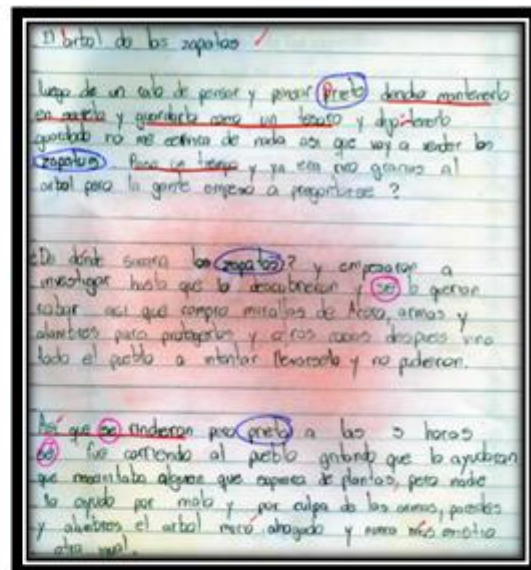 El arbol de los zapatos
luego de un rato de pensar y pensar Prieto decidio mantenerlo
en secreto y guardarlo como un tesoro y dijo tenerlo
guardado no me servira de nada asi que voy a vender los
zapatos. Paso un tiempo y ya era rico gracias al
arbol pero la gente empeso a preguntarse ?
¿De dónde sacara los zapatos? y empesaron a
investigar hasta que lo descubrieron y se lo querian
robar asi que compro murallas de Acero, armas y
alambres para protegerlo y otras cosas despues vino
todo el pueblo a intentar llevarselo y no pudieron.
Así que se rindieron pero prieto a las 5 horas
se fue corriendo al pueblo gritando que lo ayudaran
que necesitaba alguien que supiera de plantas, pero nadie
lo ayudo por malo y por culpa de las armas, paredes
y alambres el arbol murió ahogado y nunca más existio
otro igual.